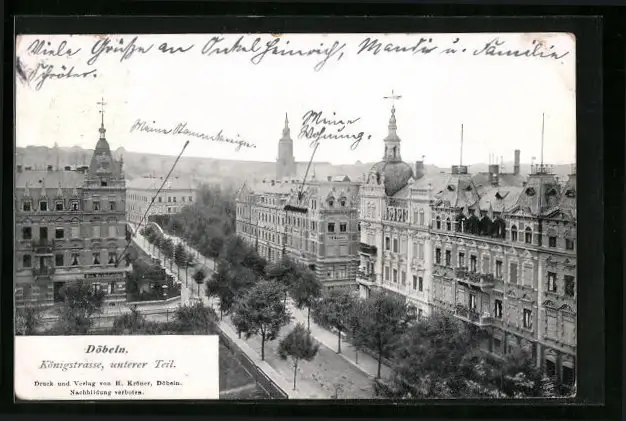 Viele Grüße an Onkel Heinrich, u. Familie
Schröter.
Meine
Meine
Wohnung.
Döbeln.
Königstrasse, unterer Teil.
Druck und Verlag von H. Kröner, Döbeln.
Nachbildung verboten.